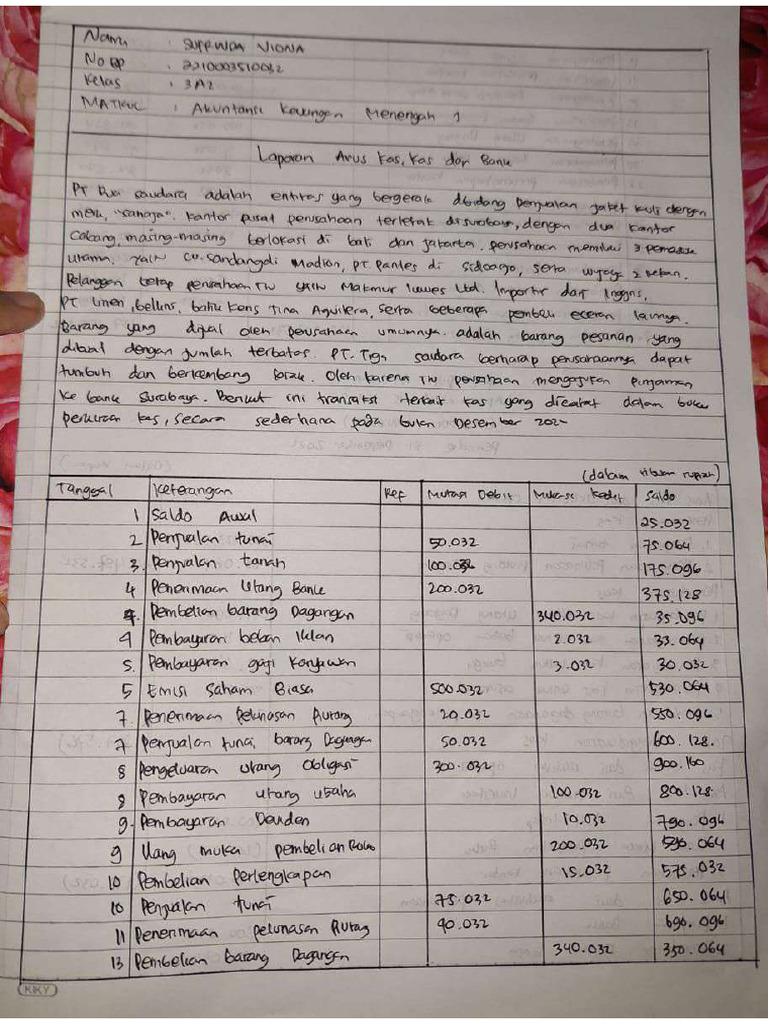 Nama : SUPRWDA VIONA
No BP : 2210003510032
Kelas : 3A2
MATKUL : Akuntansi Keuangan Menengah 1
Laporan Arus Kas, Kas dan Bank
PT Dua saudara adalah entitas yang bergerak dibidang penjualan jaket kulit dengan
merk, "Sanaja". Kantor pusat perusahaan terletak disurabaya, dengan dua kantor
Cabang, masing-masing berlokasi di bali dan jakarta. perusahaan memiliki 3 pemasok
utama. yaitu CV. Sandangdi Madiun, PT. Pantes di Sidoarjo, serta
Pelanggan tetap perusahaan itu yaitu Makmur Ltd. Importir dari Inggris,
PT Linen, bellins, batik Keris Tina Aguilera, serta beberapa pembeli eceran lainnya.
Barang yang dijual oleh perusahaan umumnya. adalah barang pesanan yang
dibuat dengan jumlah terbatas. PT. Tiga saudara berharap perusahaannya dapat
tumbuh dan berkembang. Oleh karena itu perusahaan mengajukan pinjaman
ke bank Surabaya. Berikut ini transaksi terkait kas yang dicatat dalam buku
kas, secara sederhana pada bulan Desember
(dalam ribuan rupiah)
Tanggal Keterangan Ref Mutasi Debit Mutasi Kedit Saldo
1 Saldo Awal 25.032
2 Penjualan tunai 50.032 75.064
3. Penjualan tanah 100.032 175.096
4 Penerimaan Utang Bank 200.032 375.128
4. Pembelian barang Dagangan 340.032 35.096
4 Pembayaran beban Iklan 2.032 33.064
5. Pembayaran gaji Karyawan 3.032 30.032
5 Emisi Saham Biasa 500.032 530.064
7. Penerimaan Pelunasan Piutang 20.032 550.096
7 Penjualan tunai barang Dagangan 50.032 600.128.
8 Pengeluaran utang Obligasi 300.032 900.160
8 Pembayaran utang usaha 100.032 800.128
9. Pembayaran Deviden 10.032 790.096
9 Uang muka pembelian Ruko 200.032 590.064
10 Pembelian Perlengkapan 15.032 575.032
10 Penjualan tunai 75.032 650.064
11 Penerimaan pelunasan Piutang 40.032 690.096
13 Pembelian barang Dagangan 340.032 350.064
KIKY